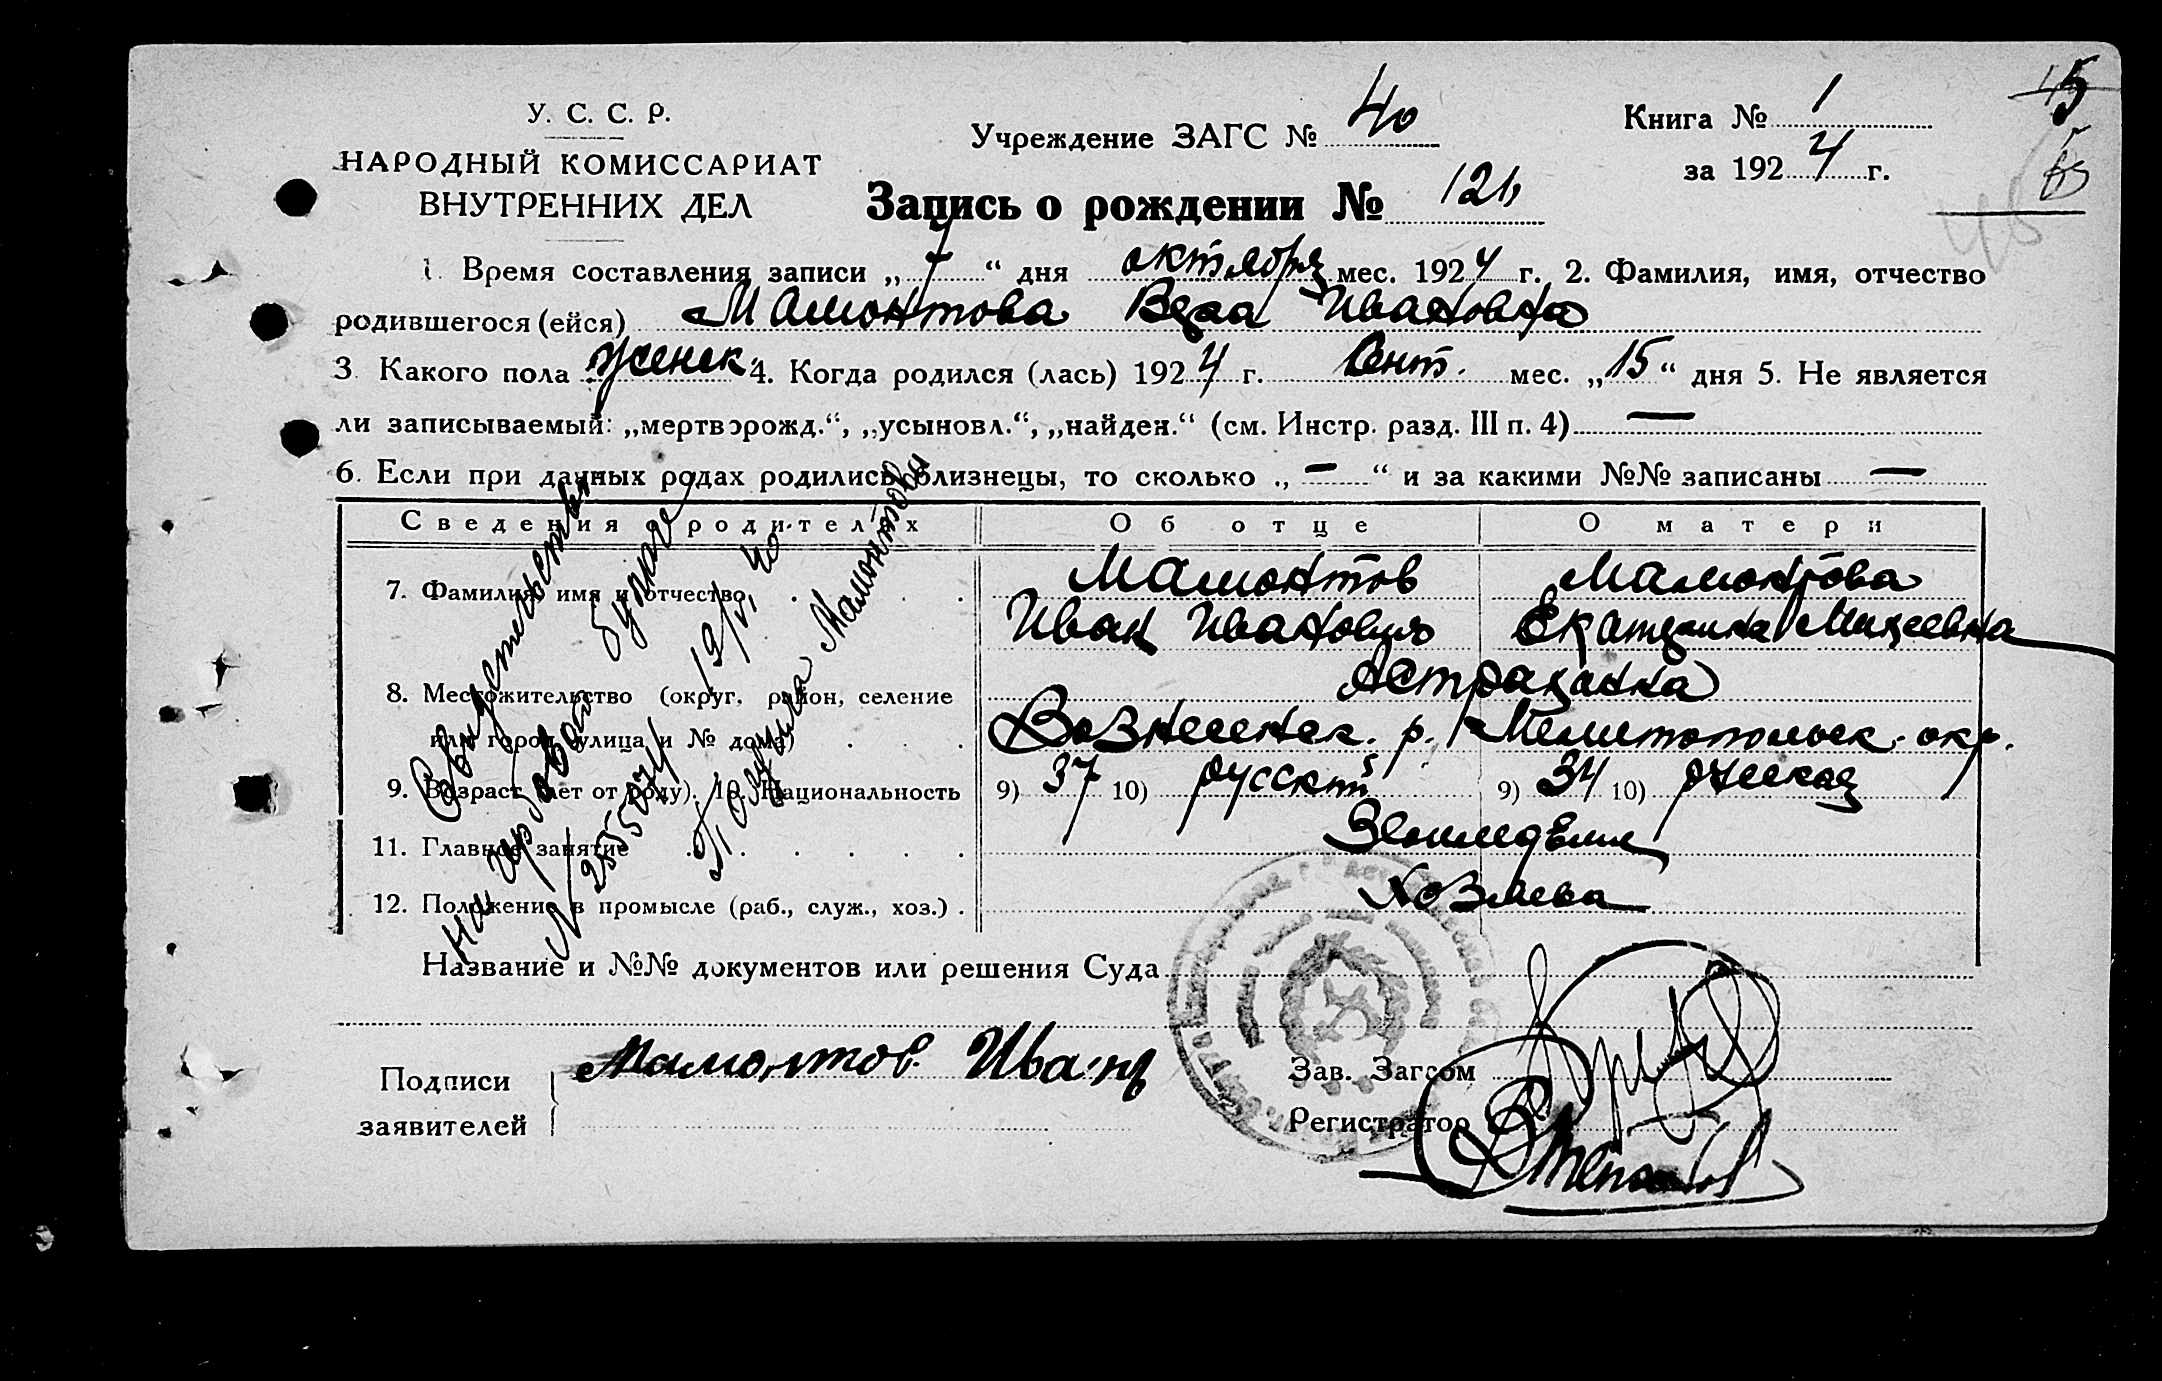 У. С. С. Р.
НАРОДНЫЙ КОМИССАРИАТ
ВНУТРЕННИХ ДЕЛ
Учреждение ЗАГС № 40
Книга № 1
за 1924 г.
Запись о рождении № 126
1. Время составления записи „7“ дня октября мес. 1924 г. 2. Фамилия, имя, отчество
родившегося (ейся) Мамонтова Вера Ивановна
3. Какого пола женск 4. Когда родился (лась) 1924 г. Сент. мес. „15“ дня 5. Не является
ли записываемый: „мертворожд.“, „усыновл.“, „найден.“ (см. Инстр. разд. III п. 4) —
6. Если при данных родах родились близнецы, то сколько „—“ и за какими №№ записаны —
Сведения о родителях Об отце О матери
7. Фамилия, имя и отчество Мамонтов Мамонтова
Иван Иванович Екатерина
8. Местожительство (округ, район, селение Астраханка
или город, улица и № дома) Вознесенск. р. Мелитопольск. окр.
9. Возраст (лет от роду). 10. Национальность 9) 37 10) русский 9) 34 10) русская
11. Главное занятие Земледелие
12. Положение в промысле (раб., служ., хоз.) Хозяева
Название и №№ документов или решения Суда
Подписи
заявителей
Мамонтов Иван
Зав. Загсом
Регистратор
Свидетельство
на гербовой бумаге
19/VI 40
Получила Мамонтова